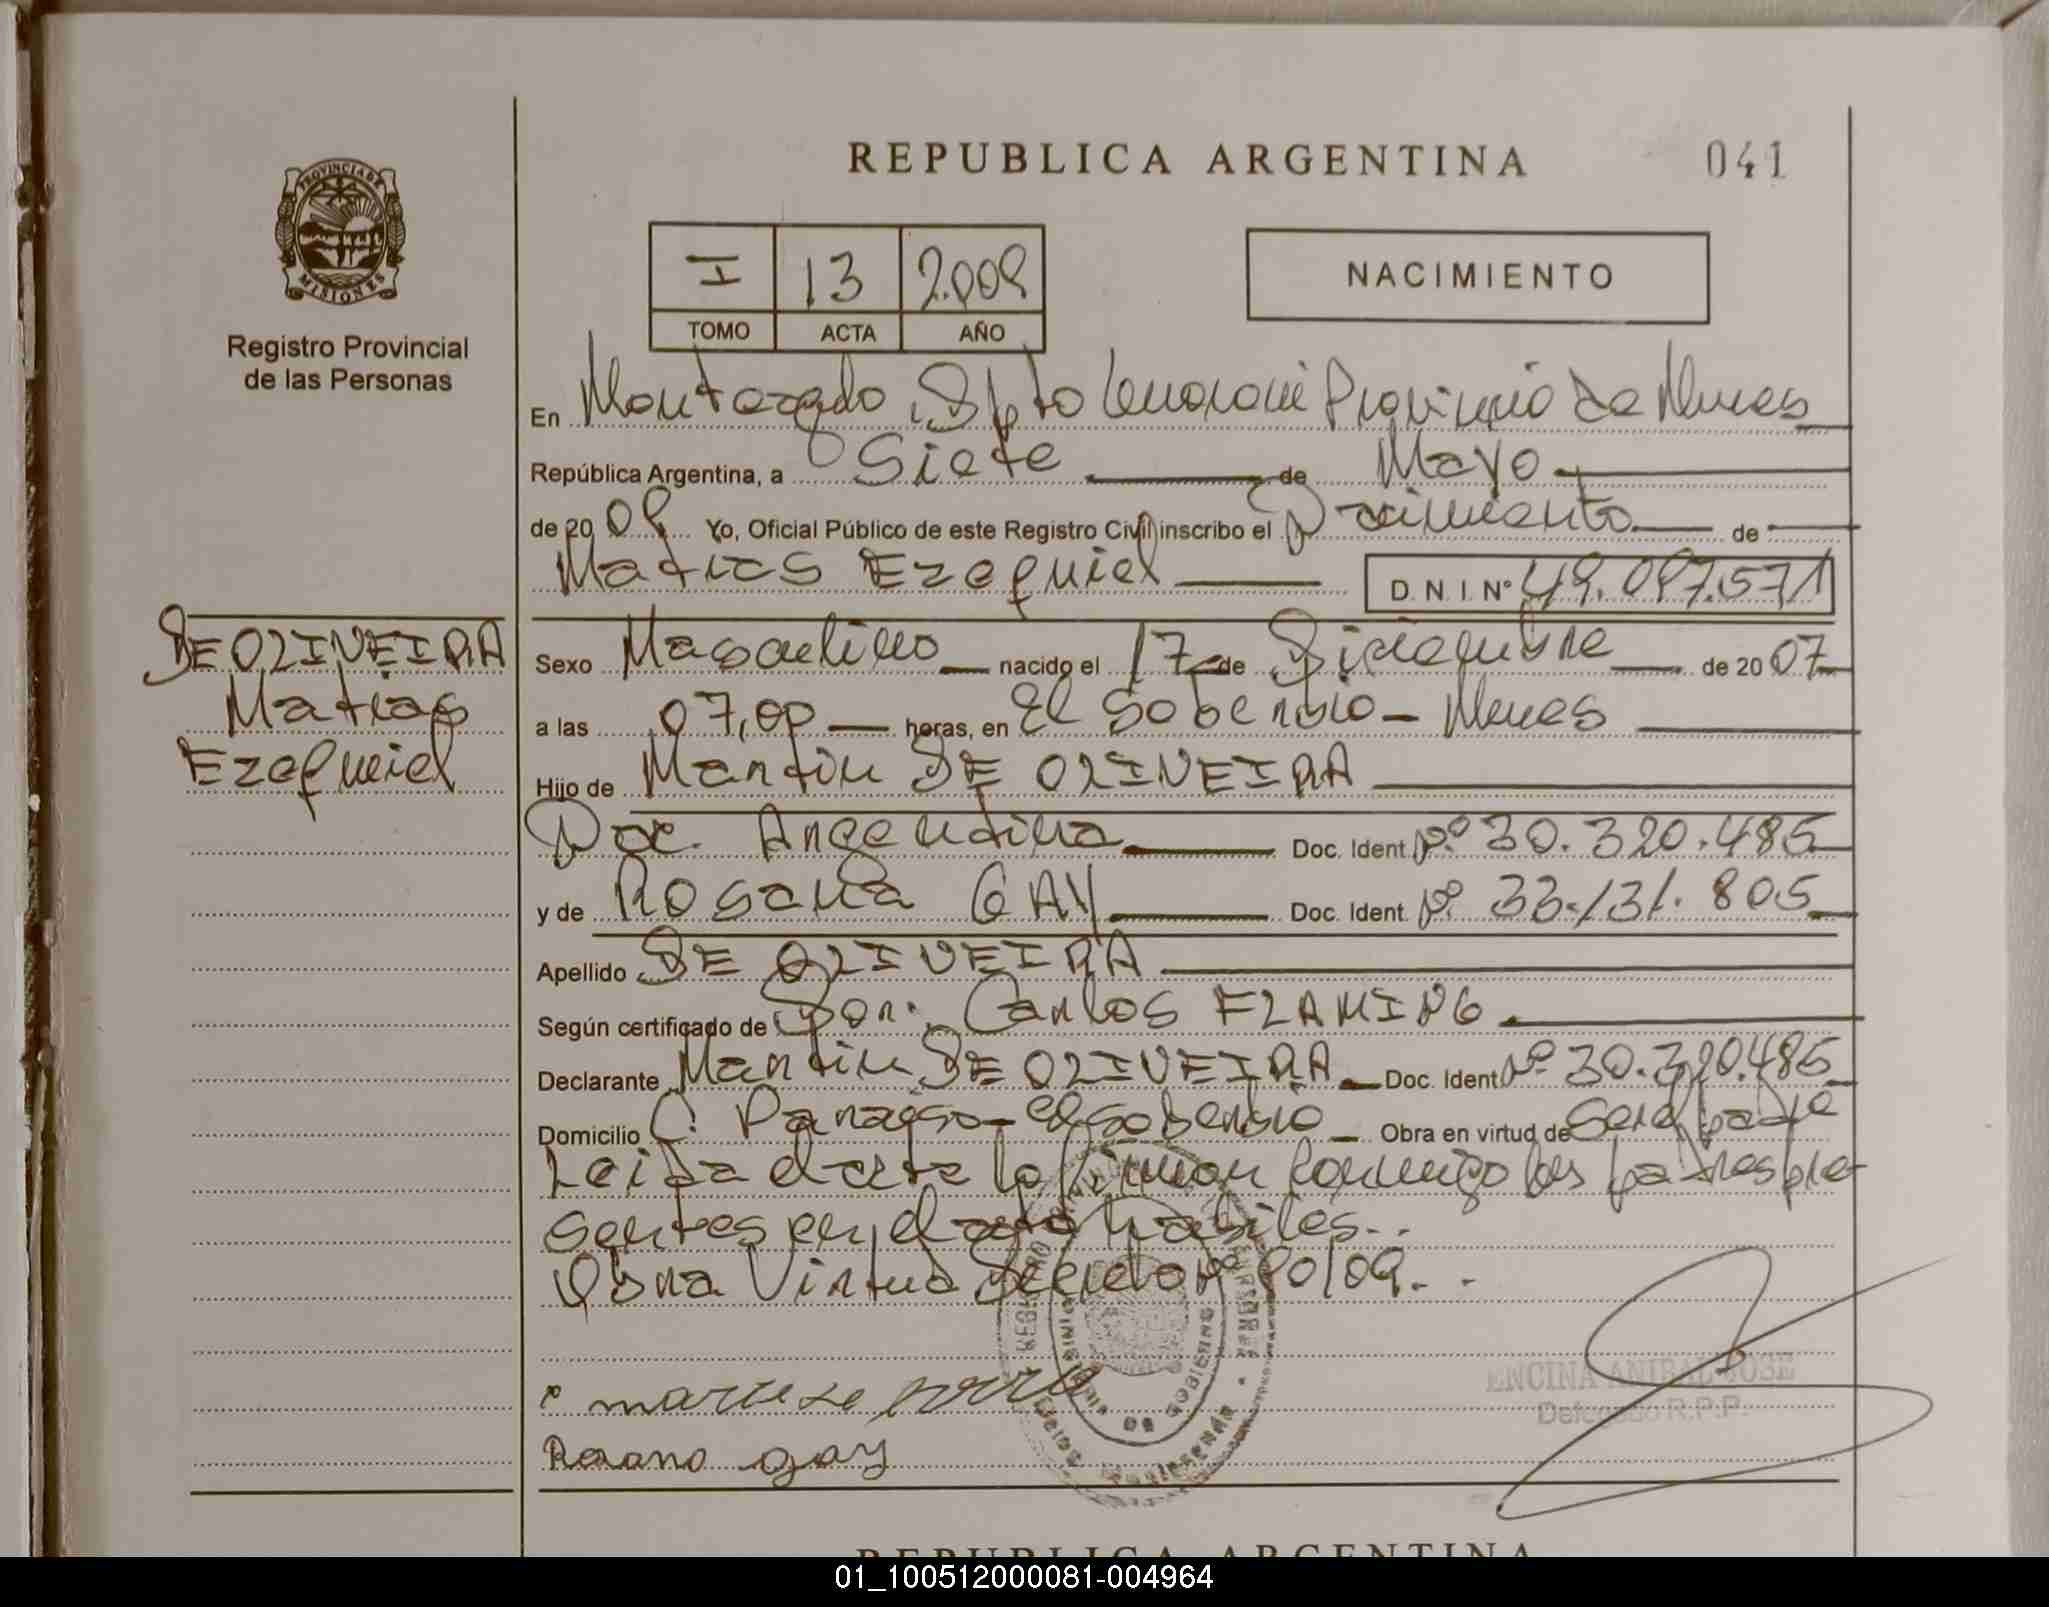 REPUBLICA ARGENTINA
041
PROVINCIA DE
MISIONES
Registro Provincial
de las Personas
I 13 2.009
TOMO ACTA AÑO
NACIMIENTO
En Montecarlo, Dpto Provincia de Mnes
República Argentina, a Siete de Mayo
de 2009 Yo, Oficial Público de este Registro Civil inscribo el Nacimiento de
Matias Ezequiel D.N.I. Nº 49.097.571
DE OLIVEIRA
Matias
Ezequiel
Sexo Masculino nacido el 17 de Diciembre de 2007
a las 07,00 horas, en El Soberbio - Mnes
Hijo de Martin DE OLIVEIRA
Nac. Argentina Doc. Ident. Nº 30.320.485
y de Rosana GAY Doc. Ident. Nº 33.131.805
Apellido DE OLIVEIRA
Según certificado de Dor. Carlos FLAMING
Declarante Martin DE OLIVEIRA Doc. Ident. Nº 30.320.485
Domicilio C. Paraiso - El Soberbio Obra en virtud de Ser el padre
Leida el acta la firman conmigo los padres pre-
sentes en el acto habiles..
Obra Virtud Decreto Nº 90/09. -
Rosana gay
ENCINA ANIBAL JOSE
Delegado R.P.P.
REPUBLICA ARGENTINA
01_100512000081-004964